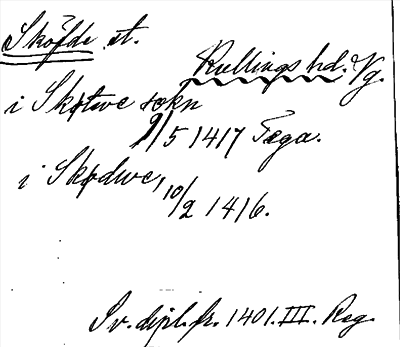 Sköfde st.
Kullings hd. Vg.
i Skøtwe sokn
9/5 1417 Tega.
i Skødwe, 10/2 1416.
Sv. dipl. fr. 1401. III. Reg.